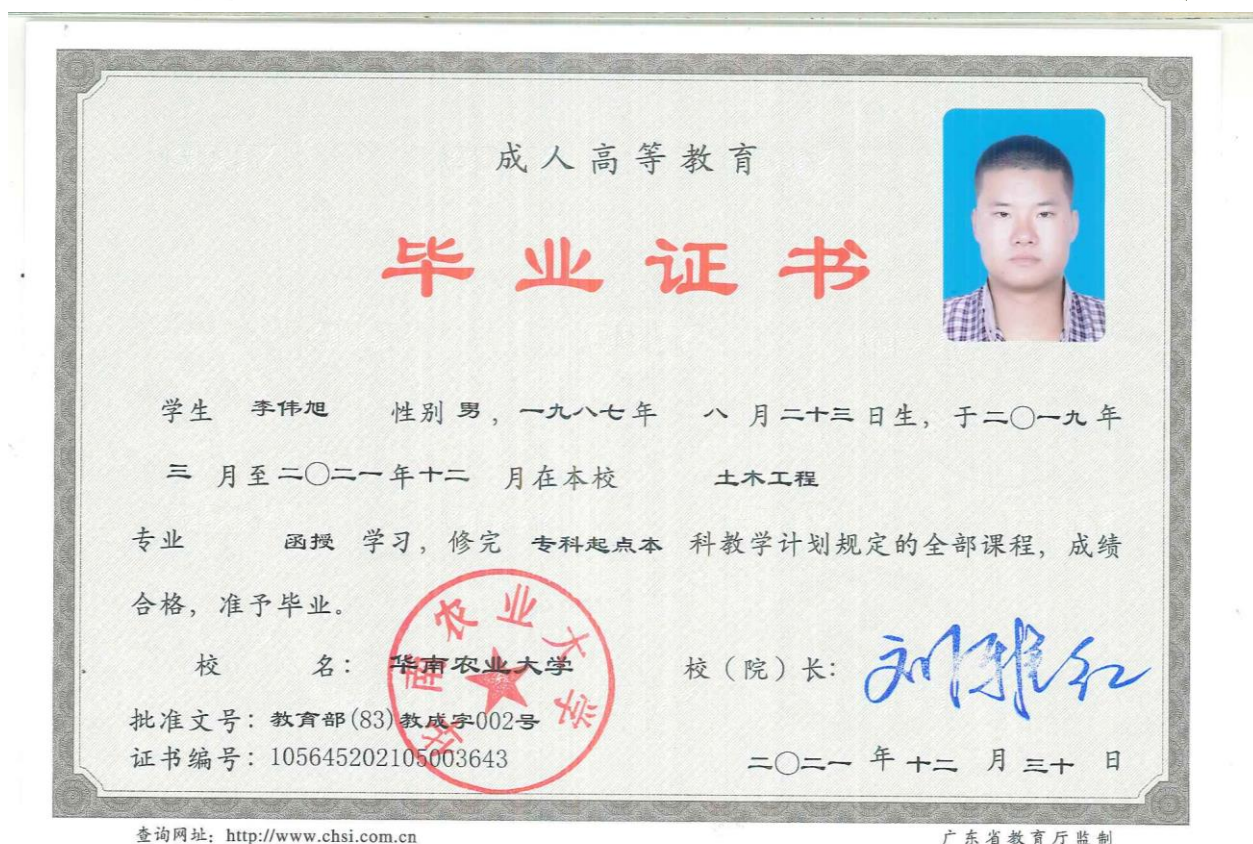 成人高等教育
毕业证书
学生 李伟旭 性别 男，一九八七年 八 月二十三日生，于二〇一九年
三 月至二〇二一年十二 月在本校 土木工程
专业 函授 学习，修完 专科起点本 科教学计划规定的全部课程，成绩
合格，准予毕业。
校 名：华南农业大学 校（院）长：刘雅红
华南农业大学
批准文号：教育部(83)教成字002号
证书编号：105645202105003643 二〇二一 年 十二 月 三十 日
查询网址：http://www.chsi.com.cn 广东省教育厅监制